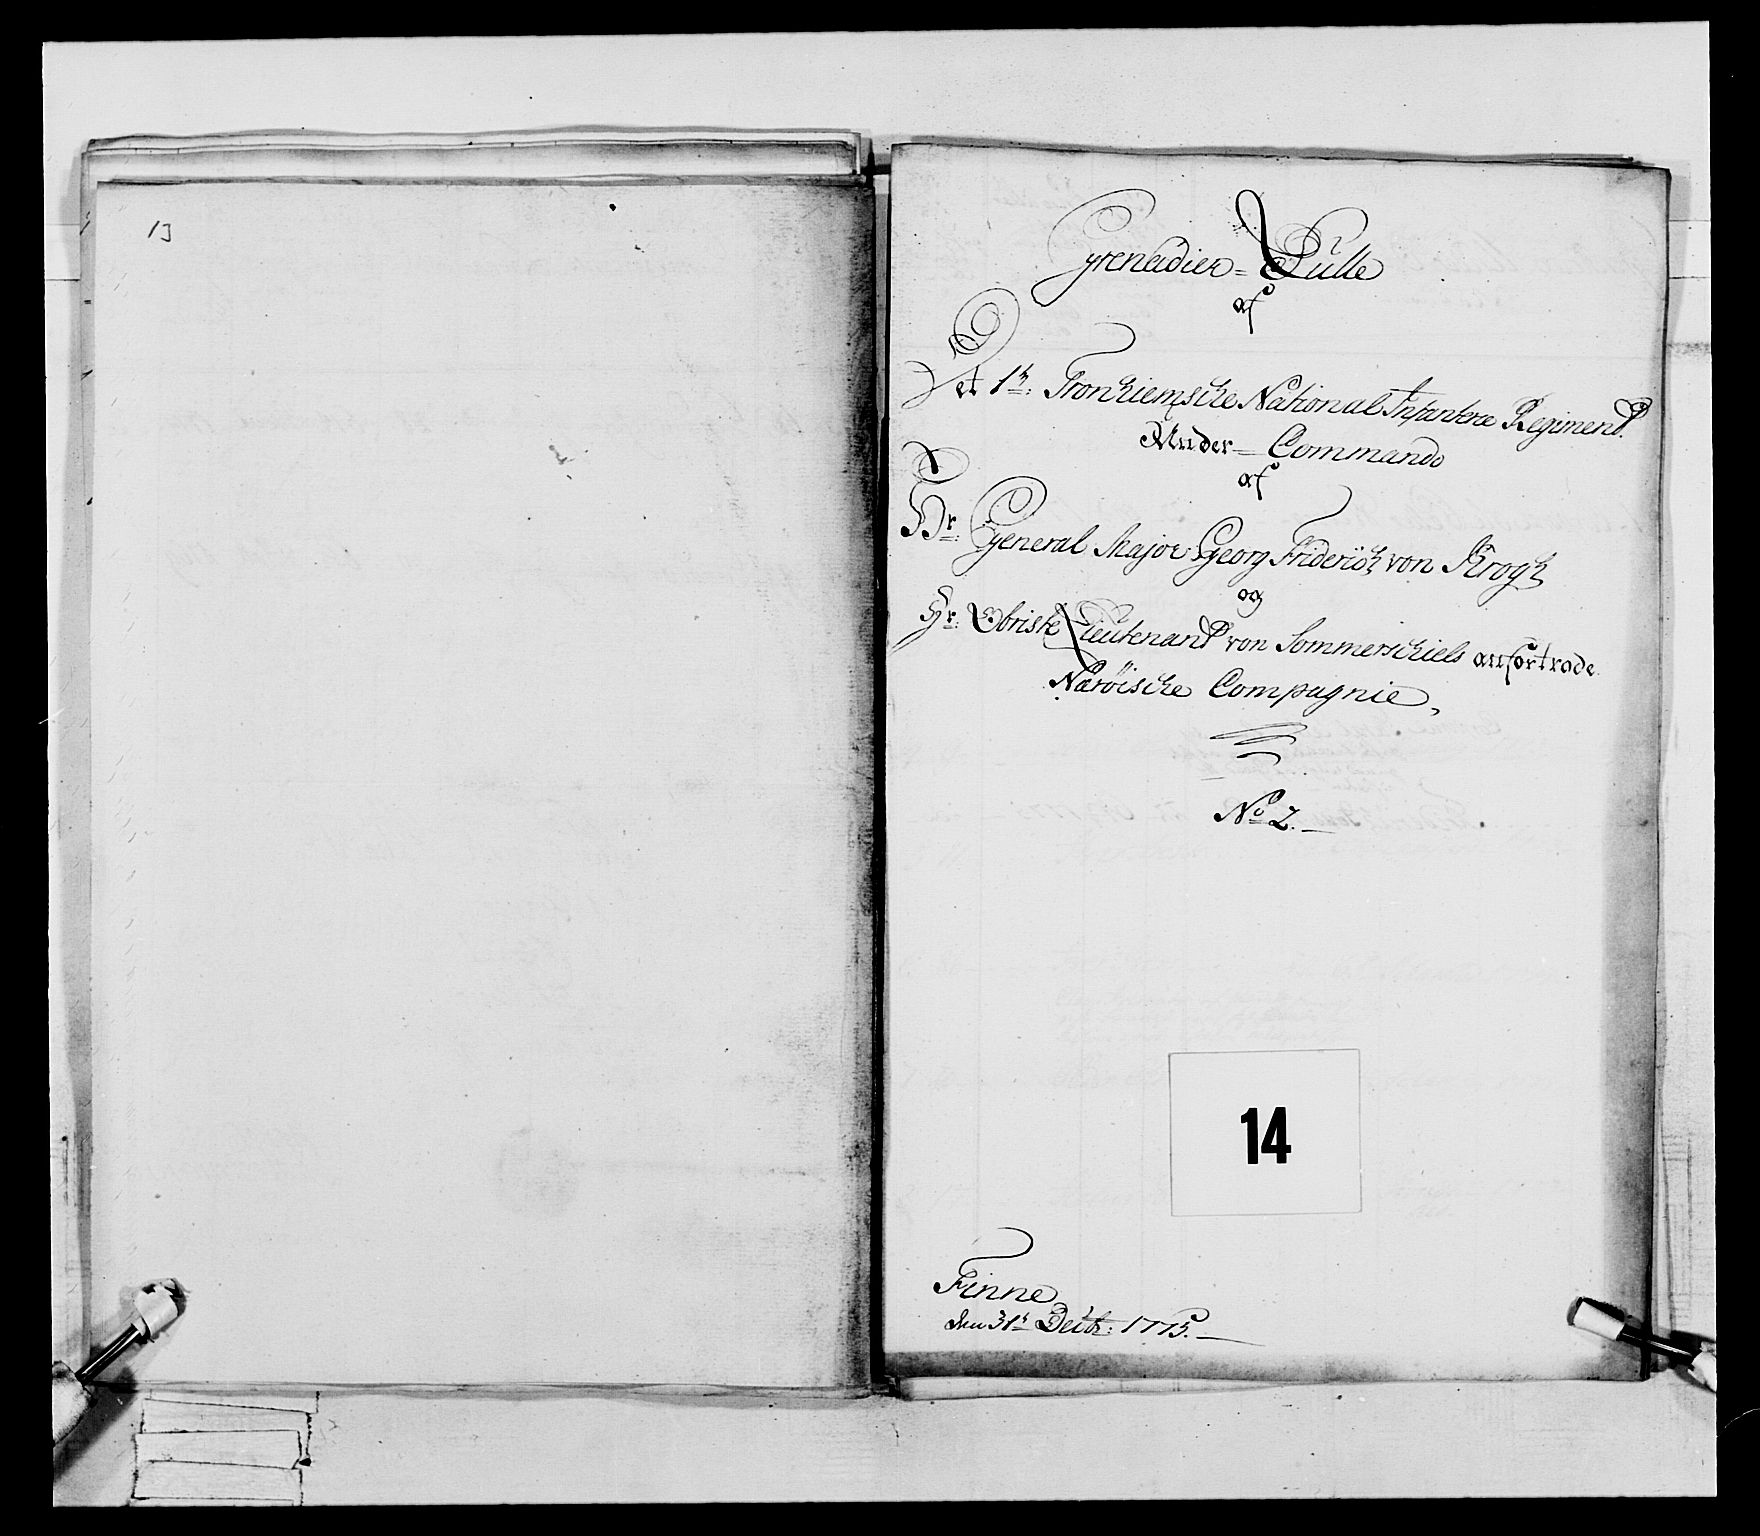 13
Grenadier= Rulle
af
Det 1te: Tronhiemsche National Infanterie Regiment.
Under= Commando
af
Hr: General Major Georg Friderich von Krogh
og
Hr: Obriste Lieutenant von Sommerschiels anfortrode
Næröische Compagnie,
No 2.
14
Finne
den 31te Decbr: 1775.